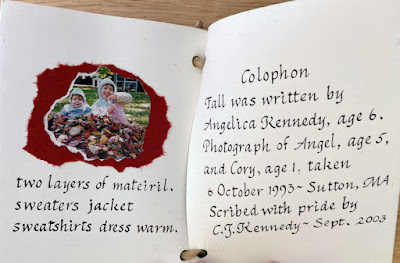 two layers of mateiril.
sweaters jacket
sweatshirts dress warm.
Colophon
Fall was written by
Angelica Kennedy, age 6.
Photograph of Angel, age 5,
and Cory, age 1, taken
6 October 1993~ Sutton, MA
Scribed with pride by
C.J.Kennedy~ Sept. 2003